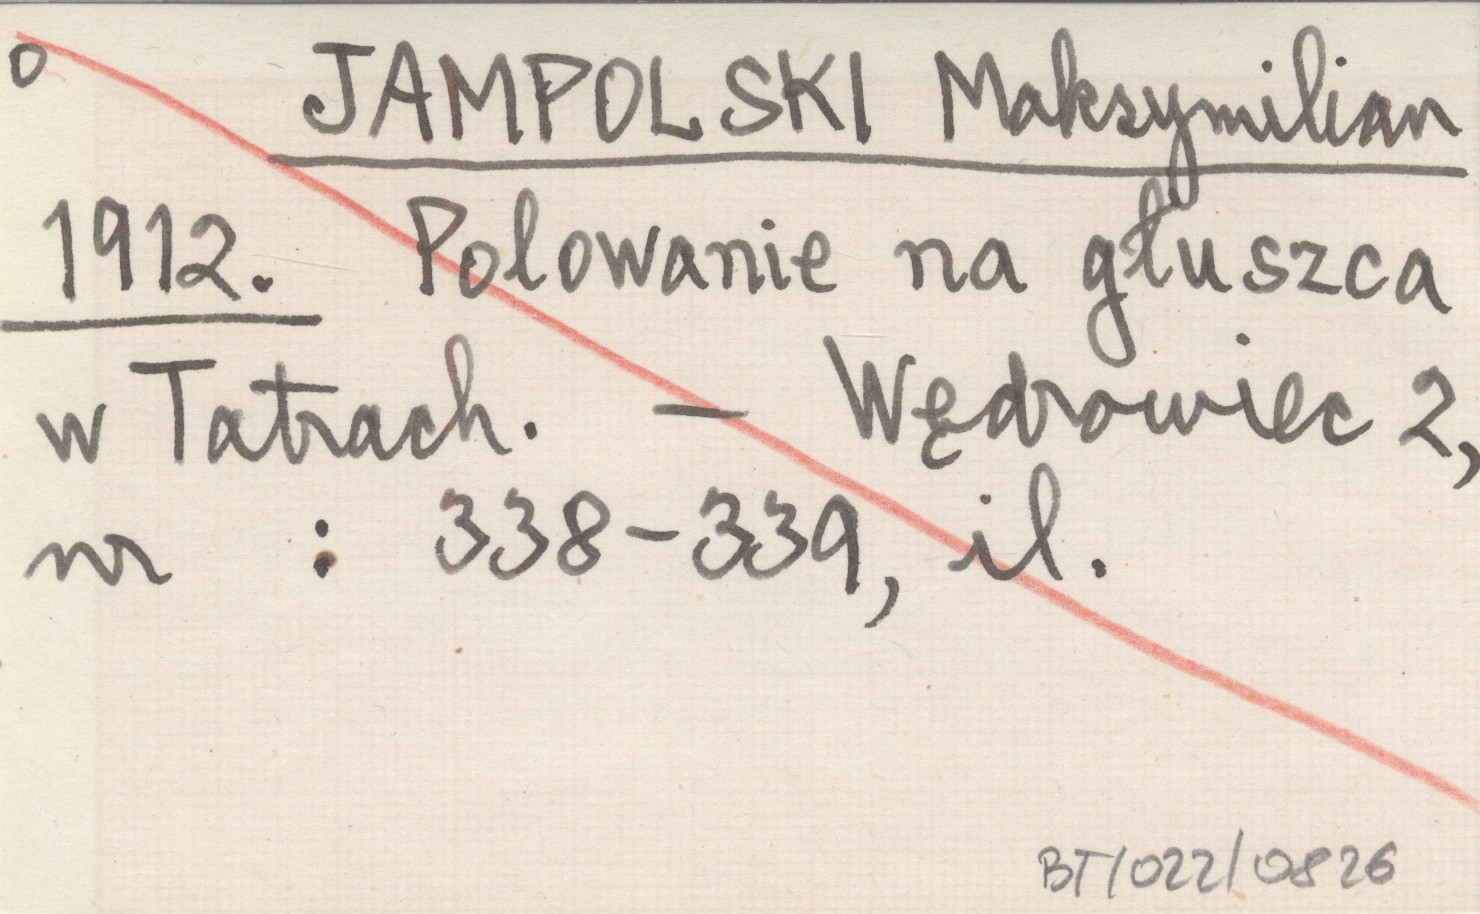 o JAMPOLSKI Maksymilian
1912. Polowanie na głuszca
w Tatrach. — Wędrowiec 2,
nr : 338-339, il.
BT/022/0826